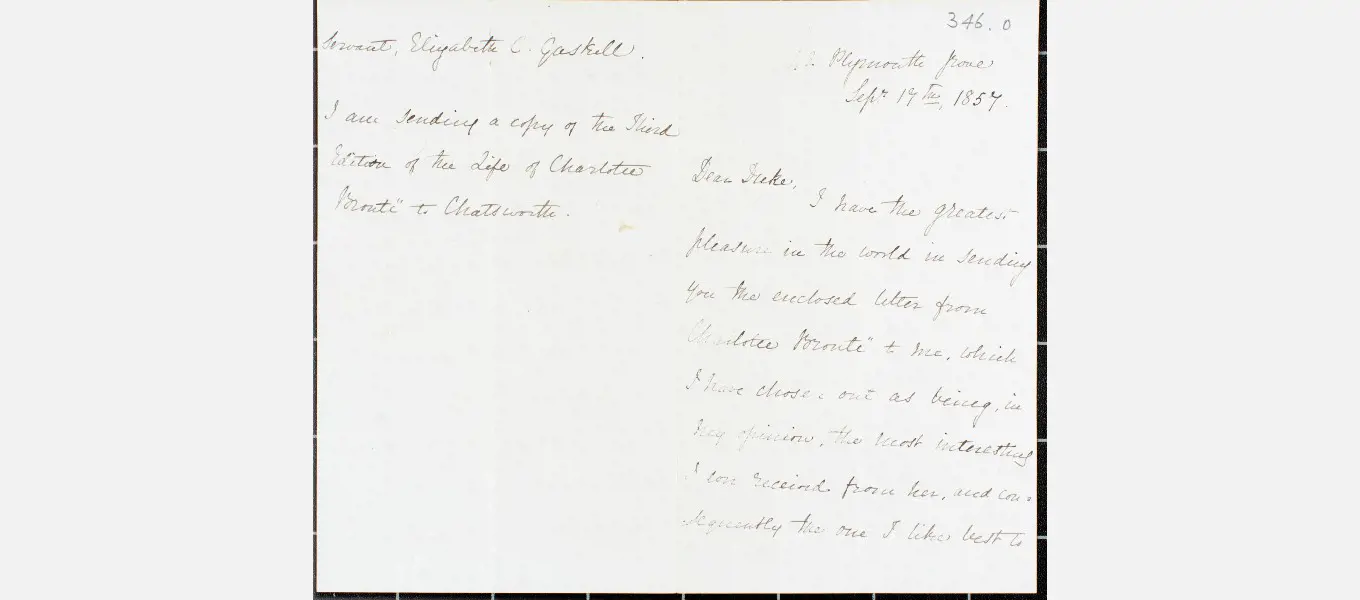 346.0
servant, Elizabeth C. Gaskell.
I am sending a copy of the Third
Edition of the Life of Charlotte
Brontë" to Chatsworth.
Plymouth Grove
Sepr. 17th, 1857.
Dear Duke,
I have the greatest
pleasure in the world in sending
you the enclosed letter from
Charlotte Brontë" to me, which
I have chosen out as being, in
my opinion, the most interesting
I ever received from her, and con-
sequently the one I like best to